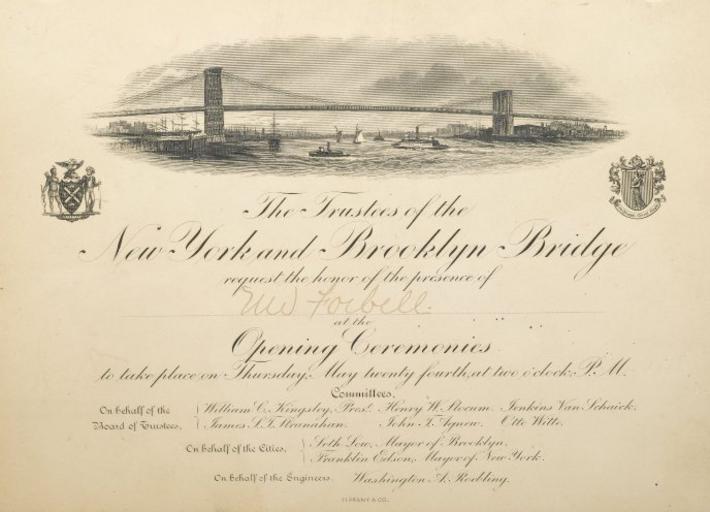 The Trustees of the
New York and Brooklyn Bridge
request the honor of the presence of
Forbell.
at the
Opening Ceremonies
to take place on Thursday, May twenty fourth, at two o'clock, P.M.
Committees.
On behalf of the Board of Trustees, { William C. Kingsley, Prest. Henry W. Slocum. Jenkins Van Schaick.
James S. T. Stranahan. John T. Agnew. Otto Witte.
On behalf of the Cities, { Seth Low, Mayor of Brooklyn.
Franklin Edson, Mayor of New York.
On behalf of the Engineers. Washington A. Roebling.
TIFFANY & CO.